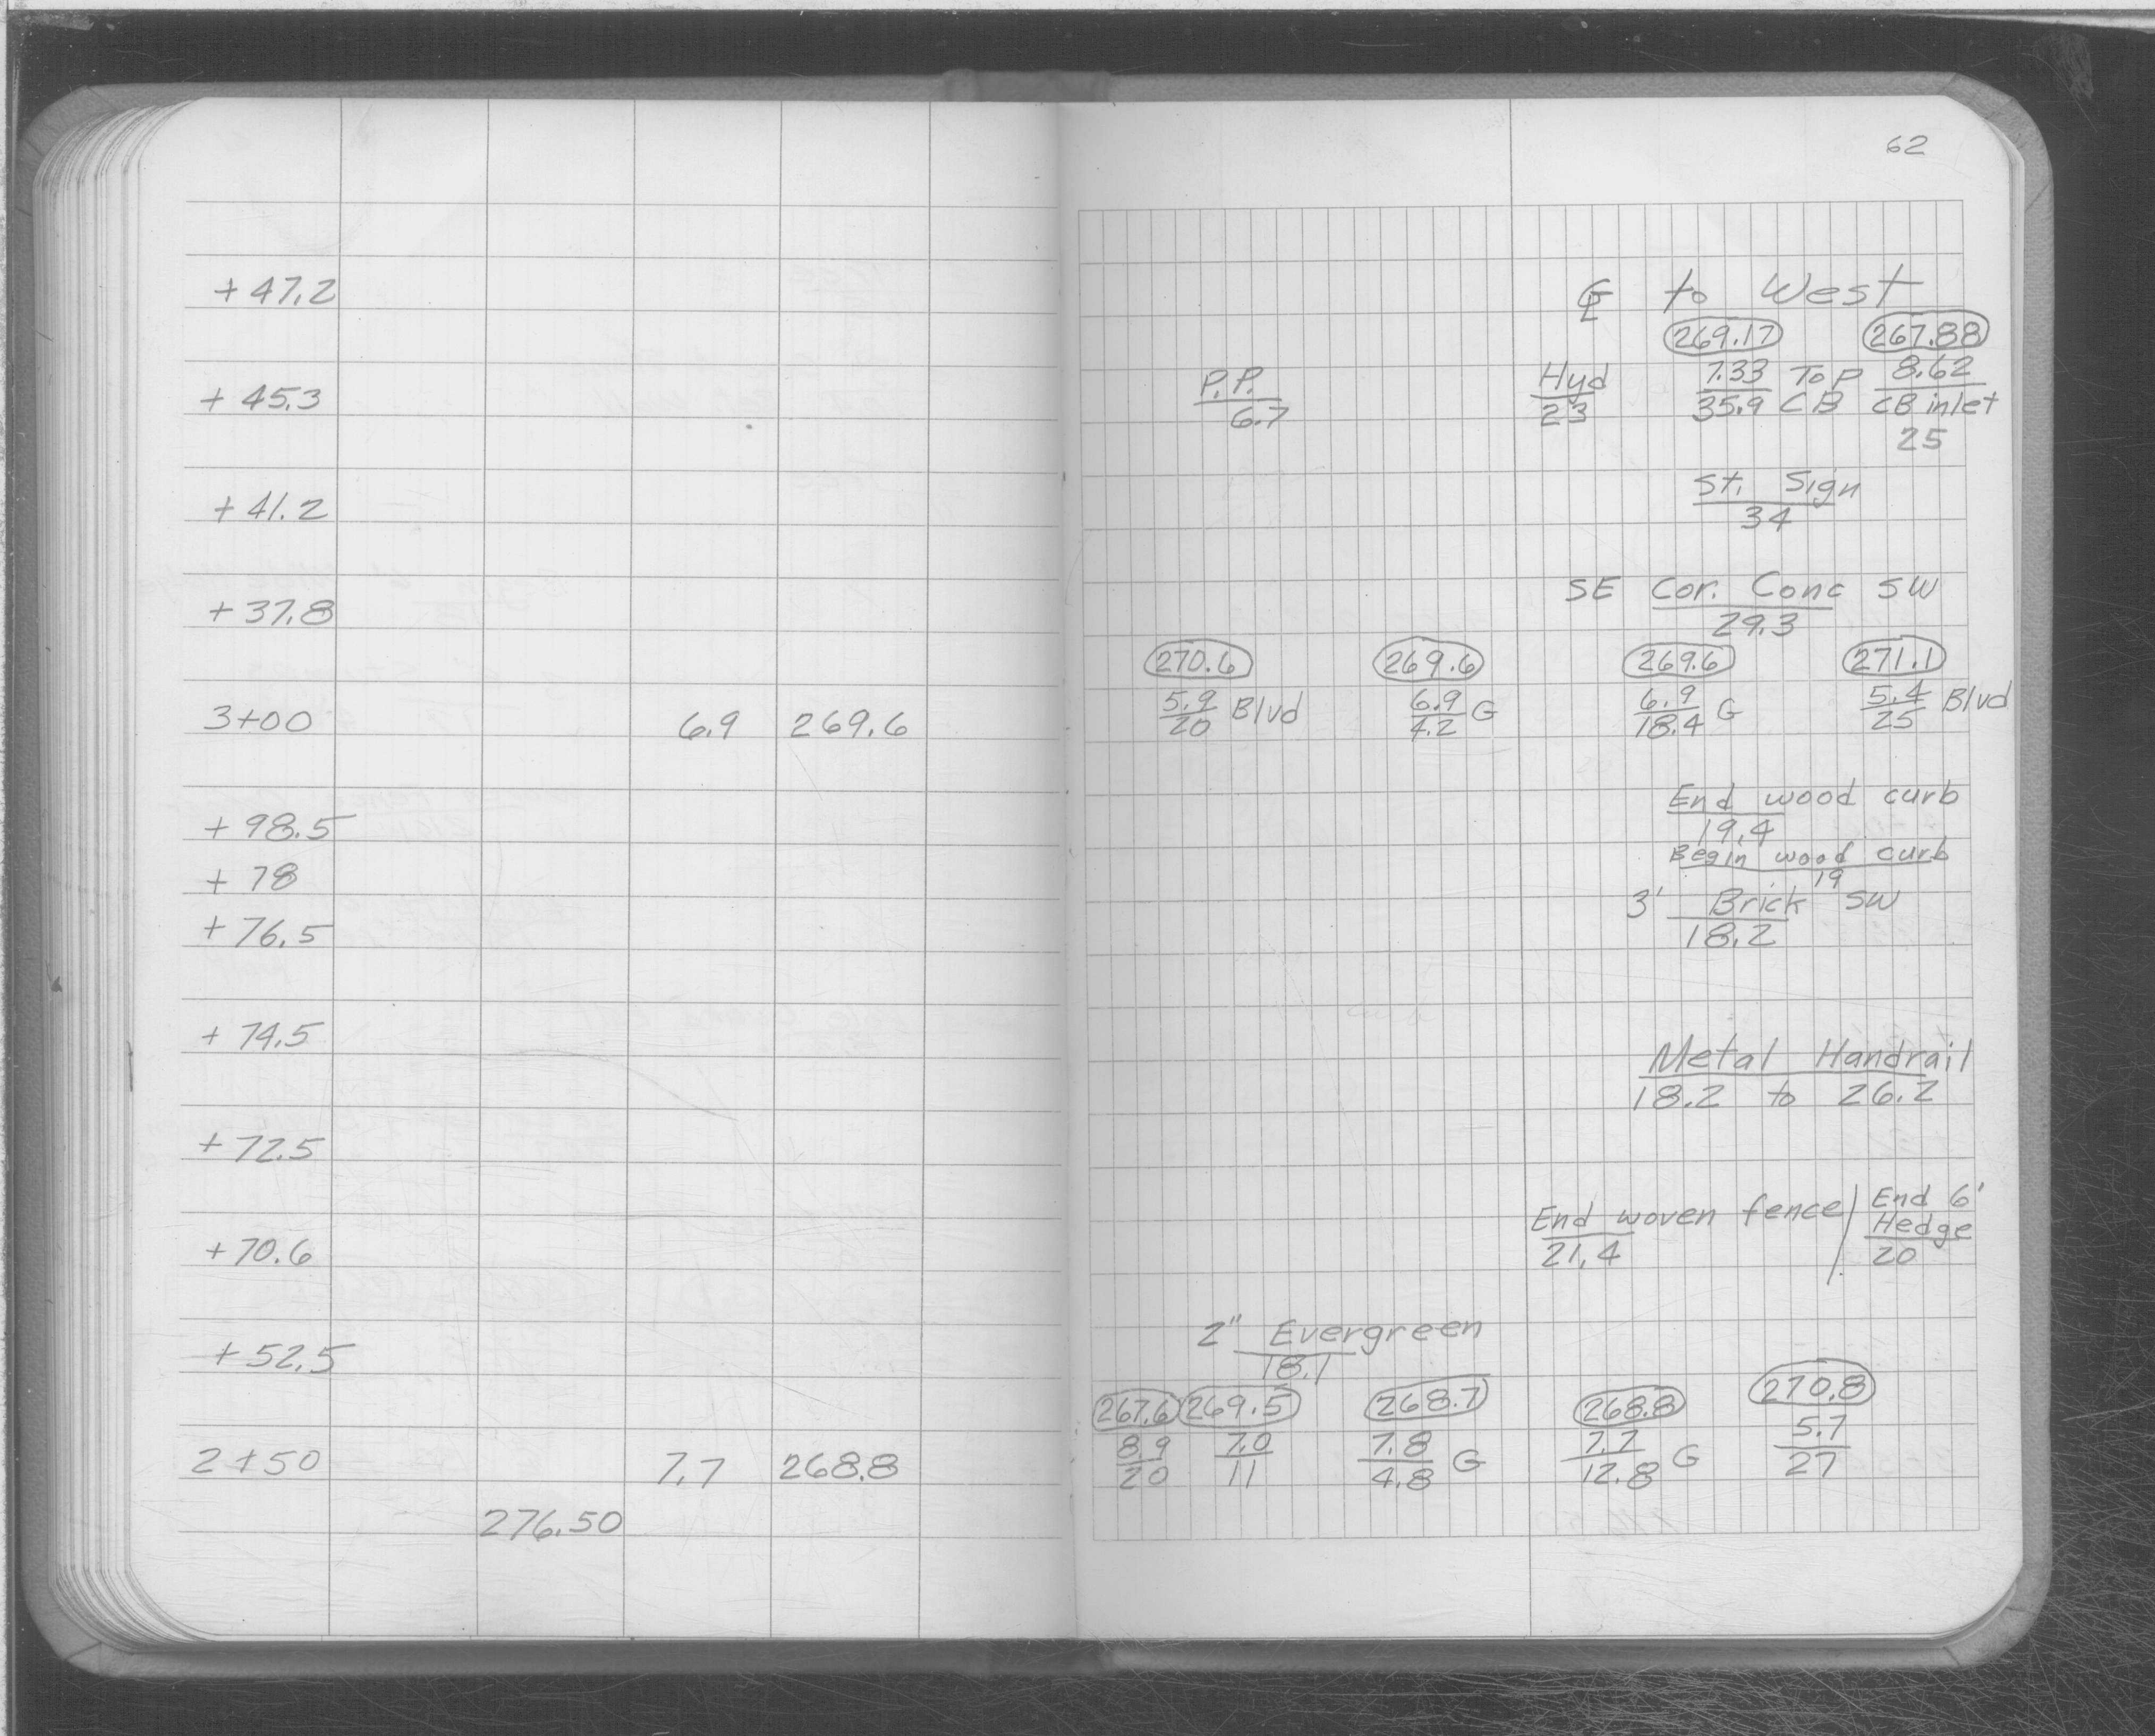 62
+ 47.2
℄ to West
269.17 267.88
+ 45.3
P.P. Hyd 7.33 Top 8.62
6.7 23 35.9 CB CB inlet
25
+ 41.2
St. Sign
34
+ 37.8
SE Cor. Conc SW
29.3
270.6 269.6 269.6 271.1
3+00 6.9 269.6
5.9 Blvd 6.9 G 6.9 G 5.4 Blvd
20 4.2 18.4 25
End wood curb
+ 98.5
19.4
Begin wood curb
+ 78
19
3' Brick SW
+ 76.5
18.2
+ 74.5
Metal Handrail
18.2 to 26.2
+ 72.5
End woven fence / End 6'
Hedge
+ 70.6
21.4 20
2" Evergreen
+ 52.5
18.1
267.6 269.5 268.7 268.8 270.8
2+50 7.7 268.8
8.9 7.0 7.8 G 7.7 G 5.7
20 11 4.8 12.8 27
276.50